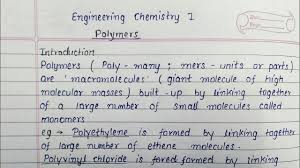 Engineering Chemistry I
Polymers
Introduction
Polymers ( Poly - many ; mers - units or parts)
are 'macromolecules' (giant molecule of high
molecular masses) built-up by linking together
of a large number of small molecules called
monomers
eg → Polyethylene is formed by linking together
of large number of ethene molecules.
Polyvinyl chloride is fored formed by linking